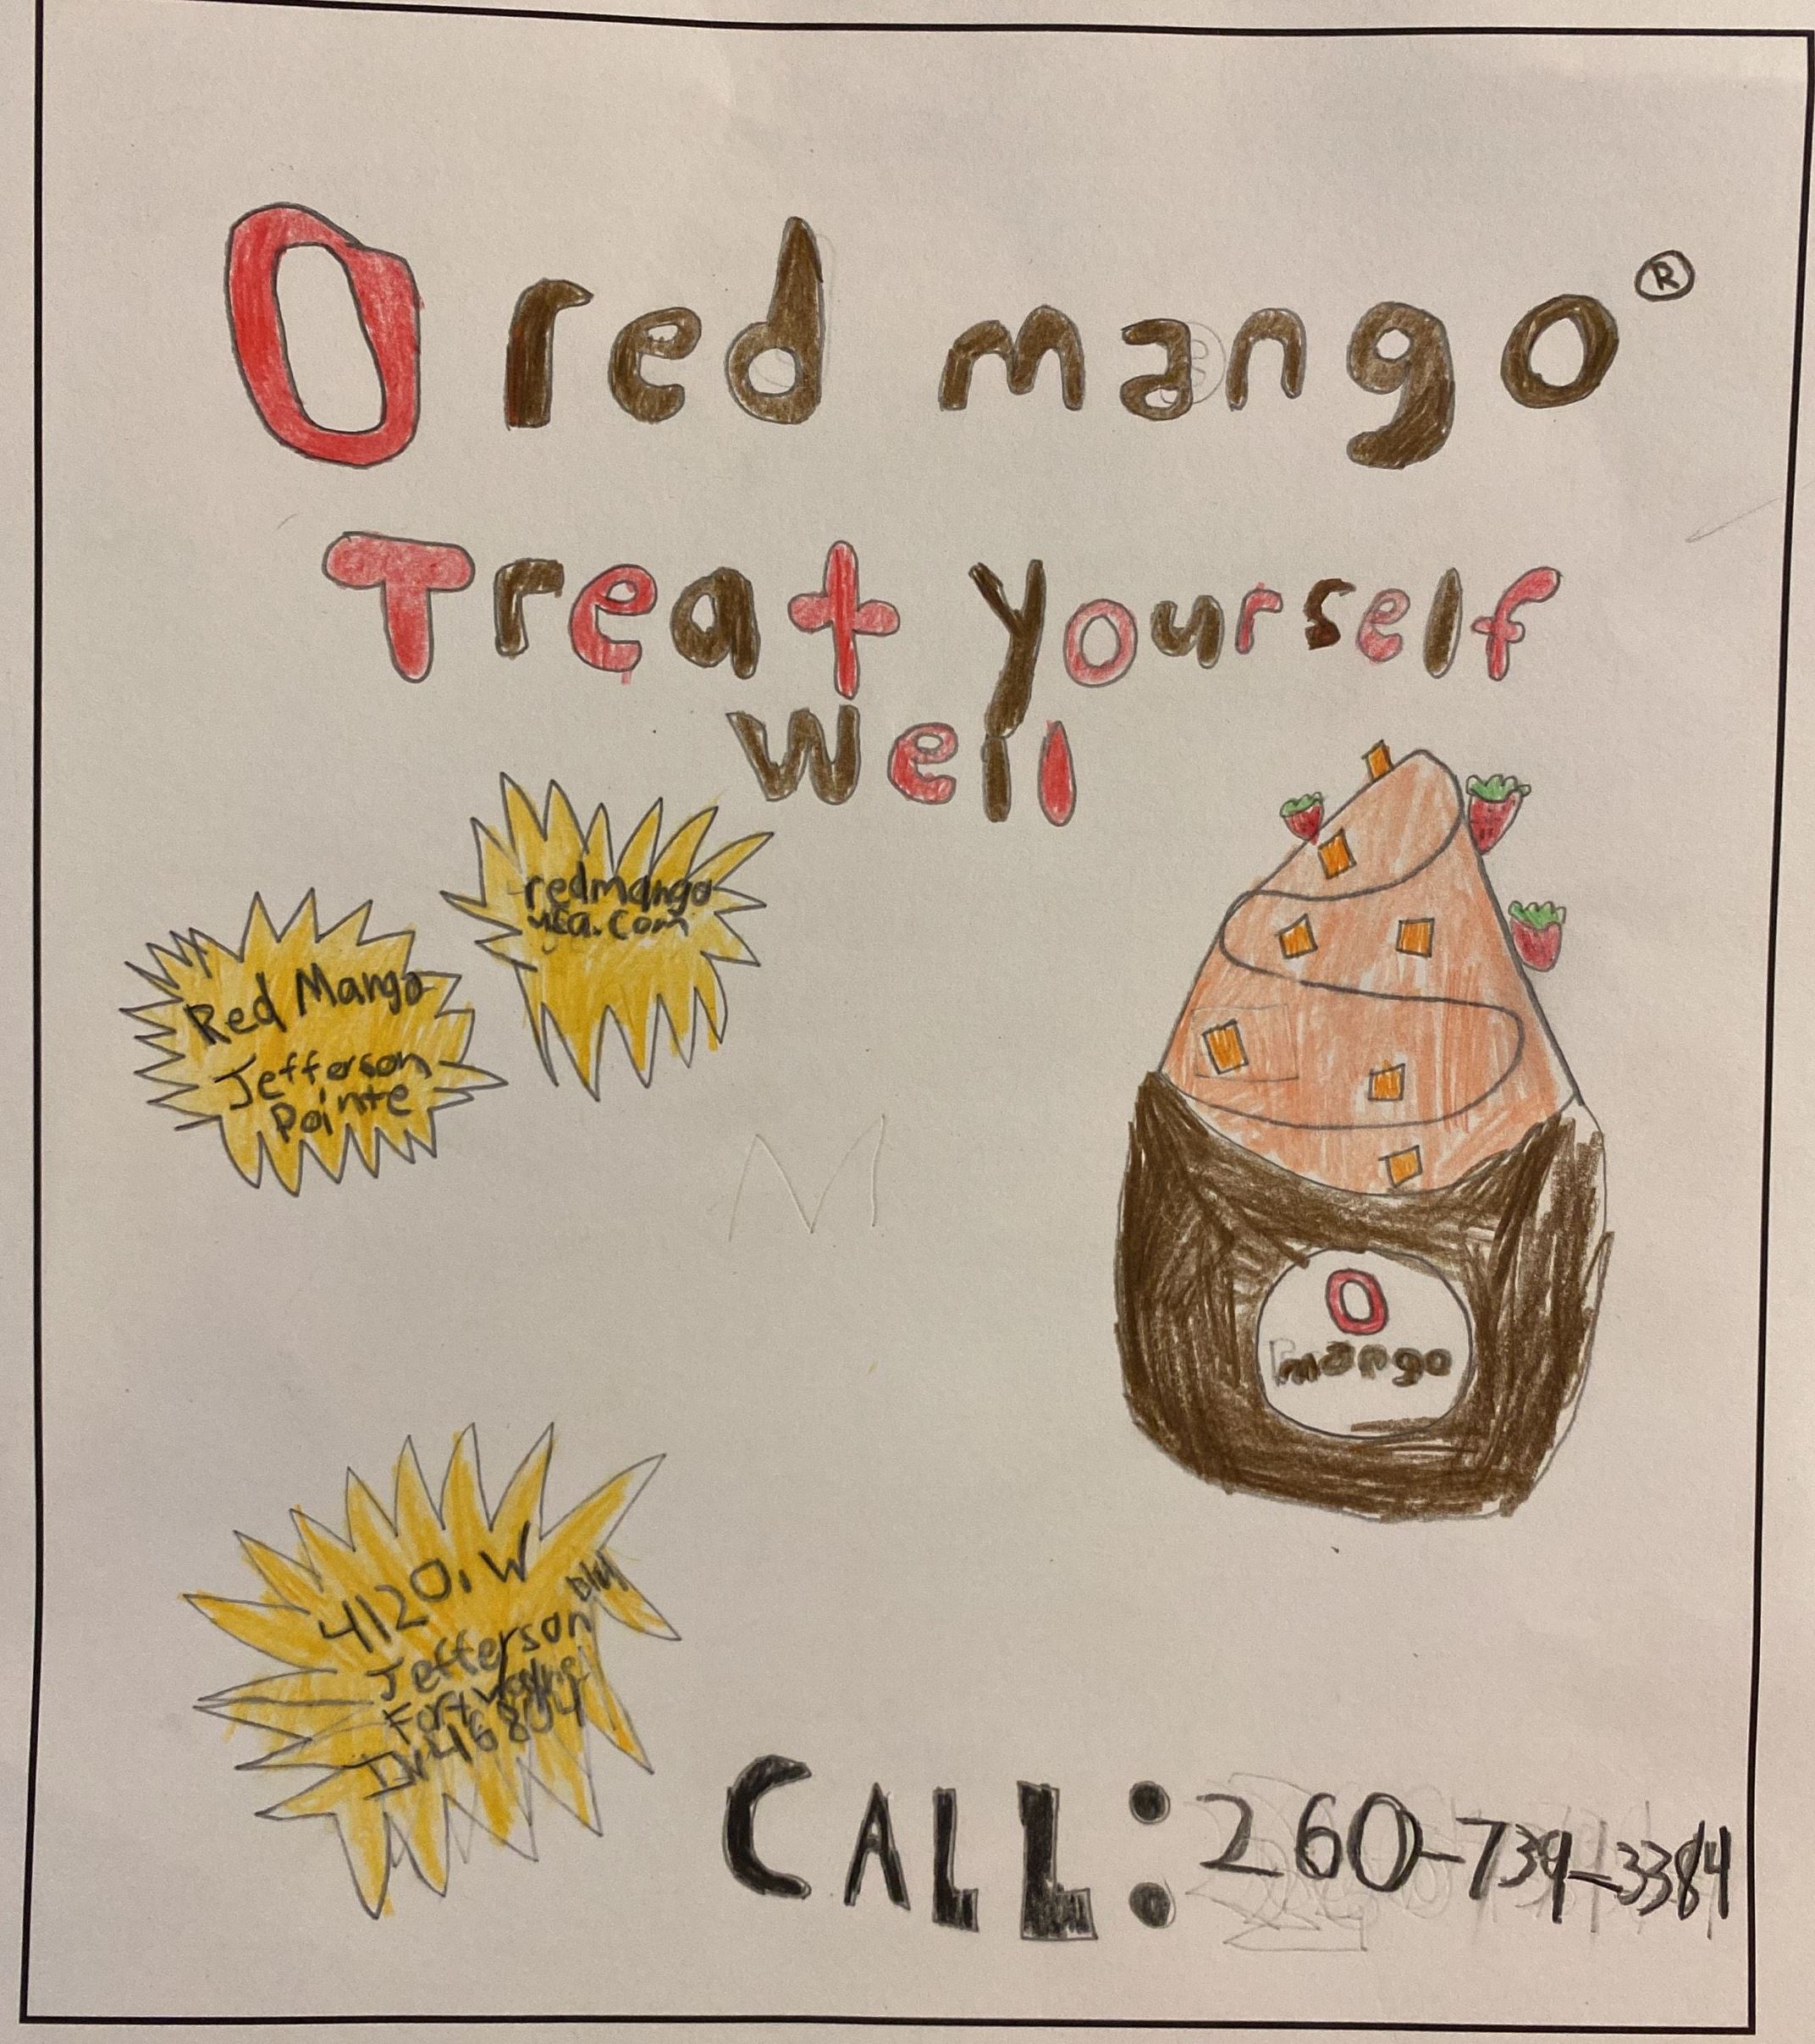 O red mango®
Treat yourself
well
redmango
usa.com
Red Mango
Jefferson
Pointe
O
mango
4120. W
Jefferson Blvd
Fort Wayne
IN 46804
CALL: 260-739-3384
M